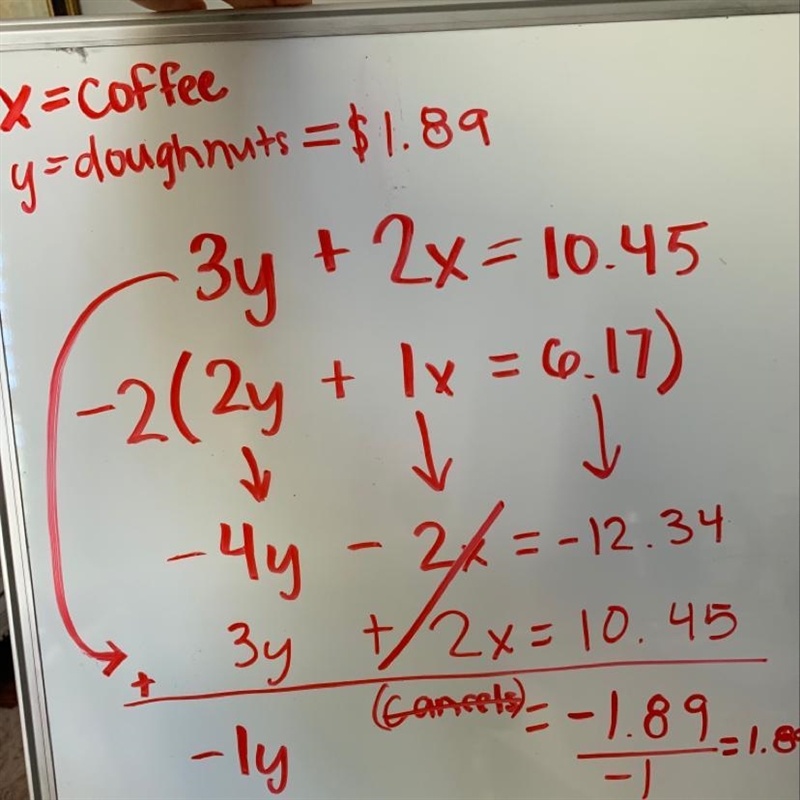 x = coffee
y = doughnuts = $1.89
3y + 2x = 10.45
-2(2y + 1x = 6.17)
-4y - 2x = -12.34
+ 3y + 2x = 10.45
-1y (cancels) = -1.89/-1 = 1.89